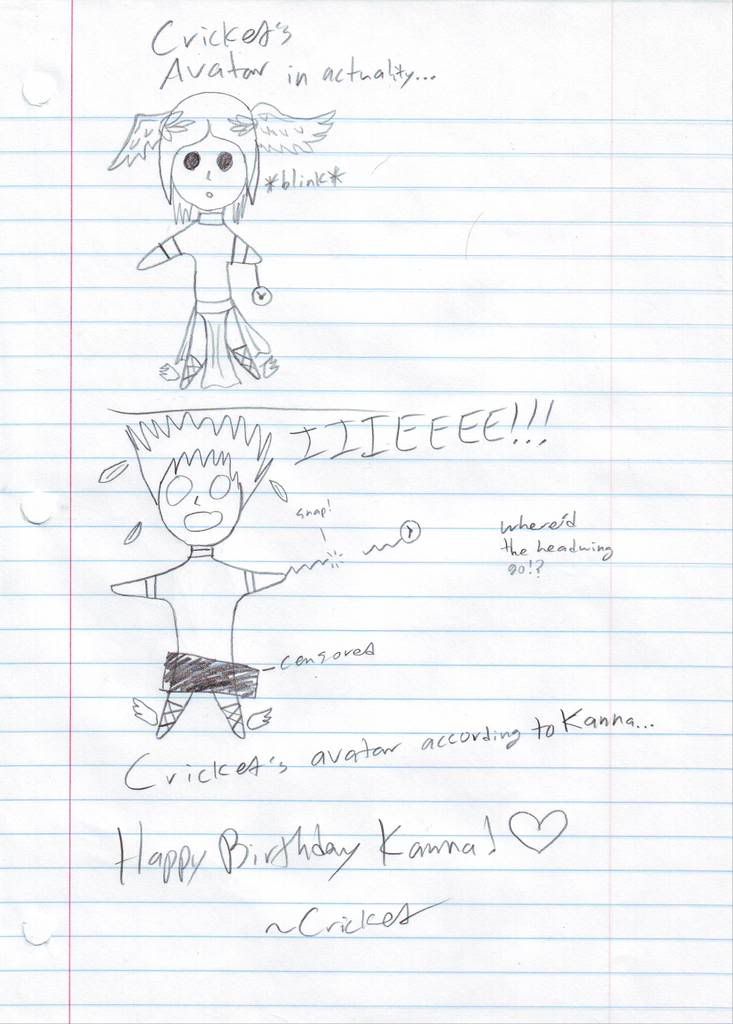 Cricket's
Avatar in actuality...
*blink*
IIIEEEE!!!
snap!
where'd
the headwing
go!?
censored
Cricket's avatar according to Kanna...
Happy Birthday Kanna! ♡
~Cricket